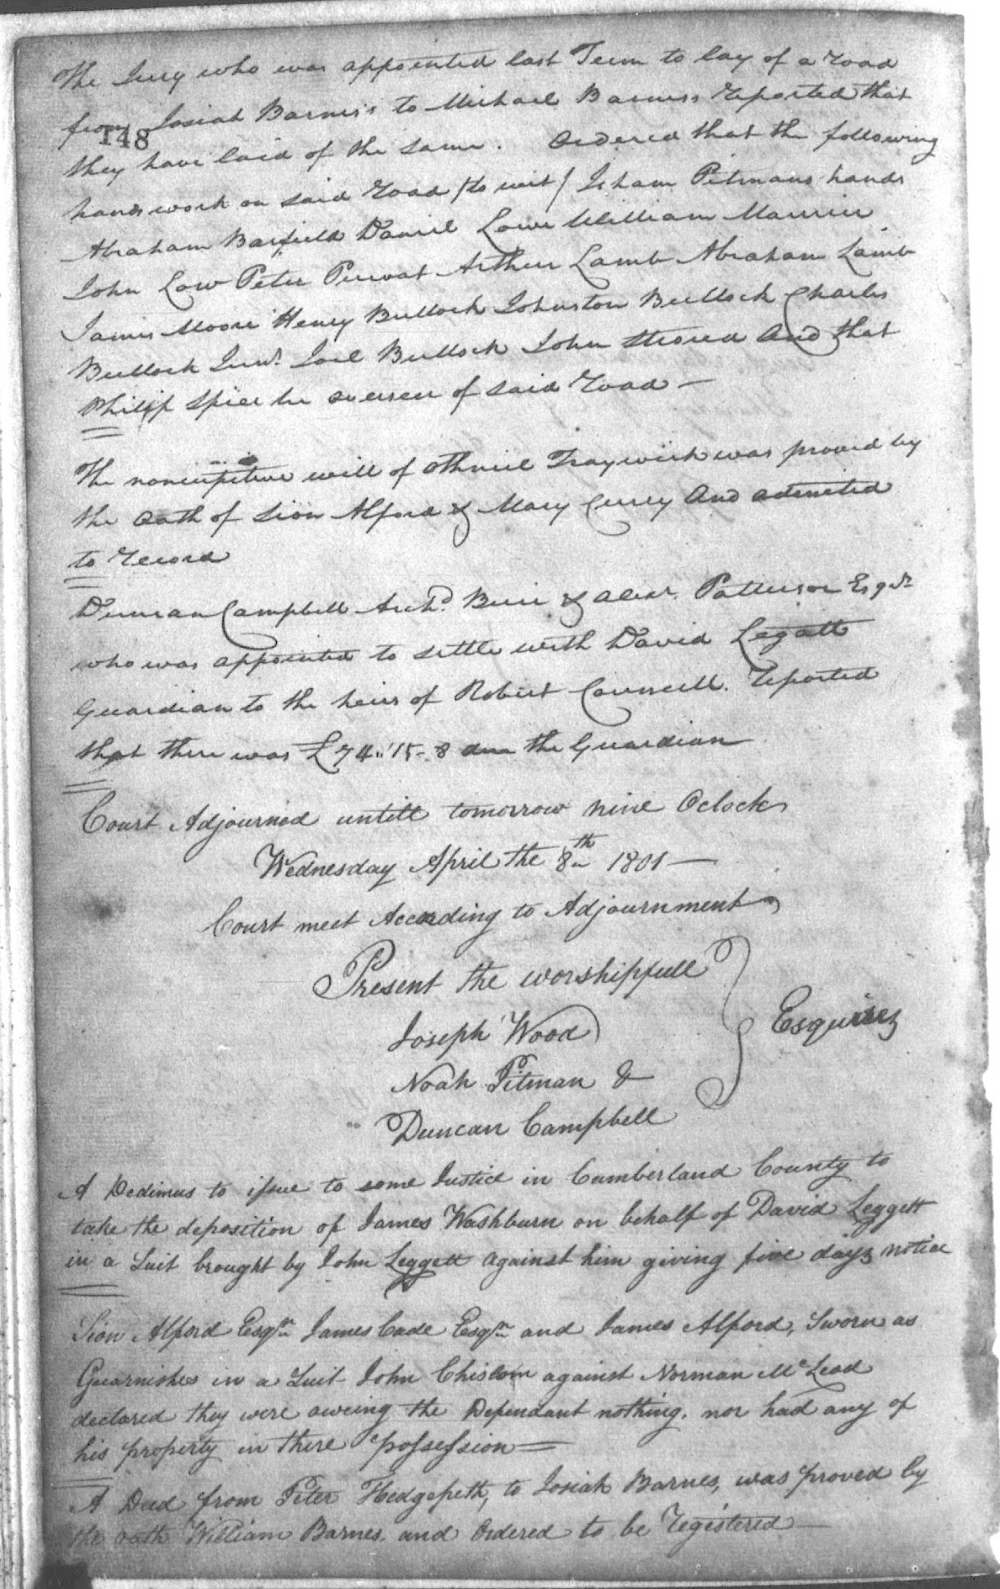 The Jury who was appointed last Term to lay of a road
from Josiah Barnes's to Michael Barness reported that
148
they have laid of the same. Ordered that the following
hands work on said road /to wit/ Isham Pitmans hands
Abraham Barfield Daniel Lowe William
John Low Peter Arthur Lamb Abraham Lamb
James Moore Henry Bullock Johnston Bullock Charles
Bullock Junr. Joel Bullock John And that
Philip Spier be overseer of said road —
The noncupetive will of Othniel Traywick was proved by
the Oath of Sion Alford & Mary Currey And admitted
to record
Duncan Campbell Archd. Buie & Alexr. Patterson Esqrs
who was appointed to settle with David Legatt
Guardian to the heirs of Robert Councill. reported
that there was £74..15..8 due the Guardian
Court Adjourned untill tomorrow nine Oclock
Wednesday April the 8th 1801 —
Court meet According to Adjournment
Present the worshipfull
Joseph Wood
Esquires
Noah Pitman &
Duncan Campbell
A Dedimus to issue to some Justice in Cumberland County to
take the deposition of James Washburn on behalf of David Leggett
in a Suit brought by John Leggett against him giving five days notice
Sion Alford Esqr. James Cade Esqr. and James Alford, Sworn as
Guarnishes in a Suit John Chislom against Norman McLead
declared they were oweing the Dependant nothing. nor had any of
his property in there possession =
A Deed from Peter Hedgepeth, to Josiah Barnes, was proved by
the oath William Barnes. and Ordered to be registered —